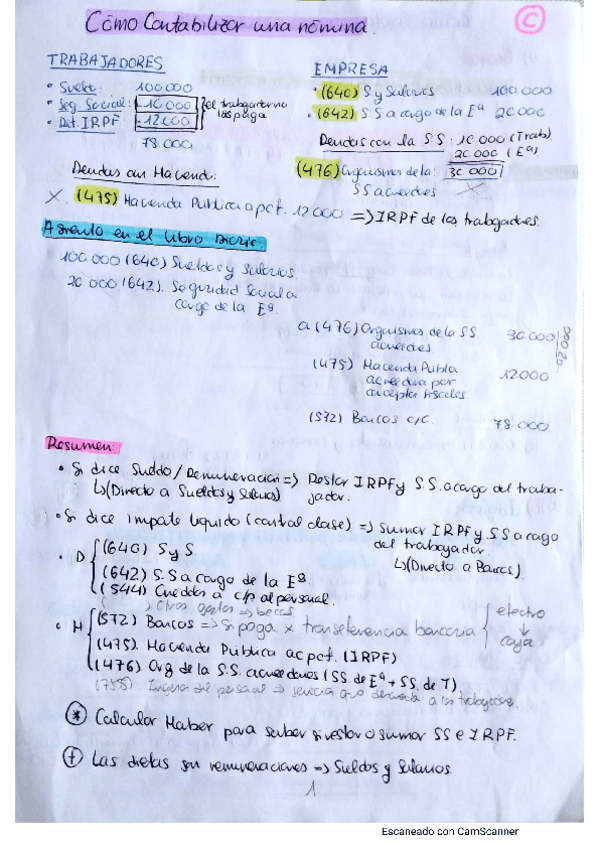 Cómo Contabilizar una nómina.
C
TRABAJADORES
EMPRESA
• Sueldo: 100.000
• Seg. Social: -10.000
• Ret. IRPF: -12.000
el trabajador no las paga
78.000
• (640) S y Salarios 100 000
• (642) SS a cargo de la Eª 20.000
Deudas con la S.S: 10 000 (Trab)
20 000 (Eª)
30.000
(476) Organismos de la SS acreedores
Deudas con Hacienda:
X. (475) Hacienda Publica a pcf. 12000 => IRPF de los trabajadores.
Asiento en el libro Diario:
100 000 (640) Sueldos y Salarios.
20 000 (642). Seguridad Social a
cargo de la Eª.
a (476) Organismos de la SS 30.000
acreedores
(475) Hacienda Publica 12000
acreedora por
conceptos fiscales
(572) Bancos c/c. 78.000
Resumen:
• Si dice Sueldo/Remuneración => Restar IRPF y S.S. a cargo del traba-
↳(Directo a Sueldos y Salarios) jador.
• Si dice importe líquido => Sumar IRPF y SS a cargo
del trabajador.
↳(Directo a Bancos)
• D (640) S y S.
(642) S.S a cargo de la Eª.
(544) Créditos a c/p al personal.
Otros gastos => becas
• H (572) Bancos => Si paga x transferencia bancaria
caja
(475). Hacienda Publica ac pcf. (IRPF)
(476) Org de la S.S. acreedores (SS de Eª + SS. de T)
(755)
* Calcular Haber para saber si restar o sumar SS e IRPF.
+ Las dietas son remuneraciones => Sueldos y Salarios
1
Escaneado con CamScanner